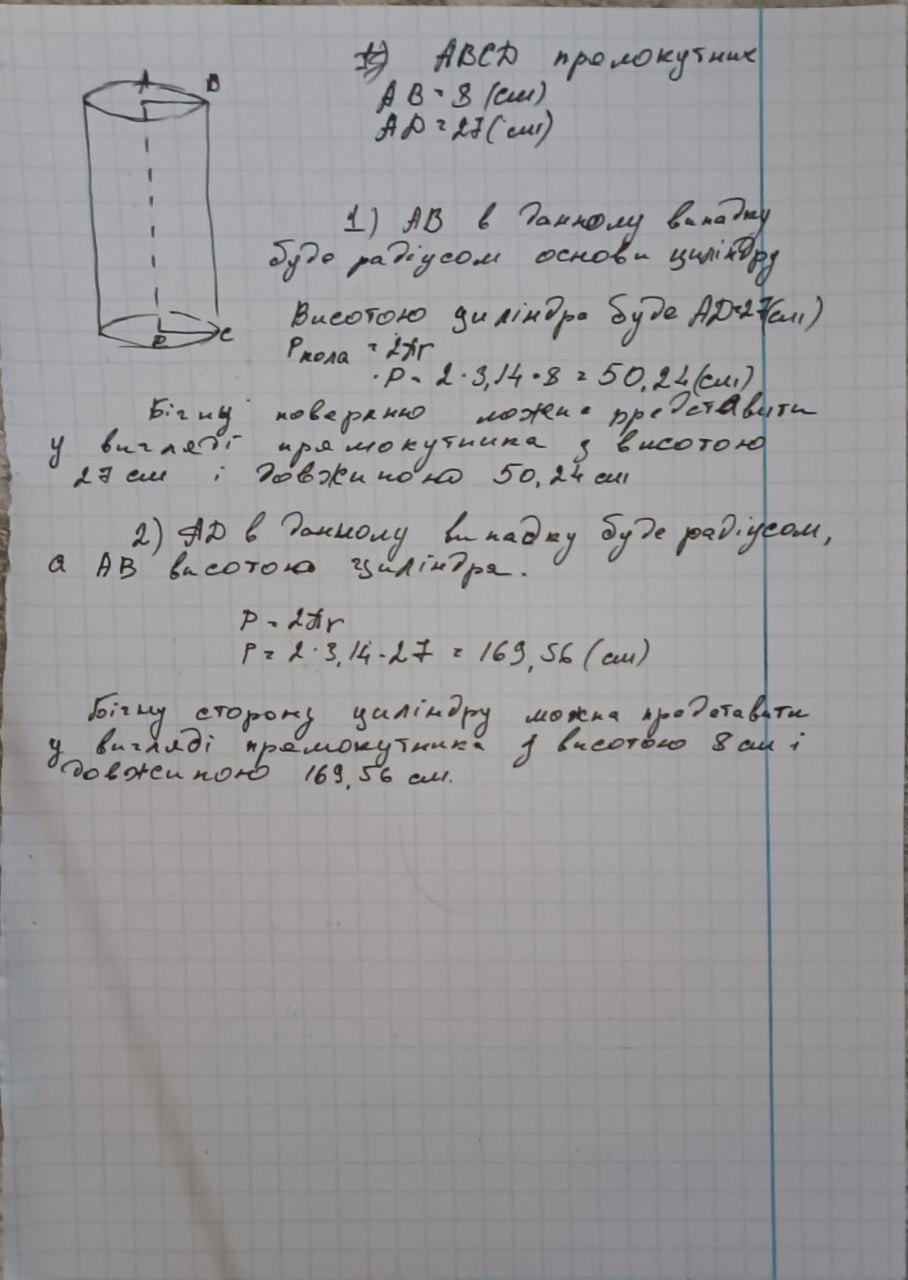 A B
ABCD прямокутник
AB = 8 (см)
AD = 27 (см)
1) AB в данному випадку
буде радіусом основи циліндру
Висотою циліндра буде AD=27(см)
D C
Pкола = 2πr
P = 2·3,14·8 = 50,24 (см)
Бічну поверхню можна представити
у вигляді прямокутника з висотою
27 см і довжиною 50,24 см
2) AD в данному випадку буде радіусом,
а AB висотою циліндра.
P = 2πr
P = 2·3,14·27 = 169,56 (см)
Бічну сторону циліндру можна представити
у вигляді прямокутника з висотою 8 см і
довжиною 169,56 см.